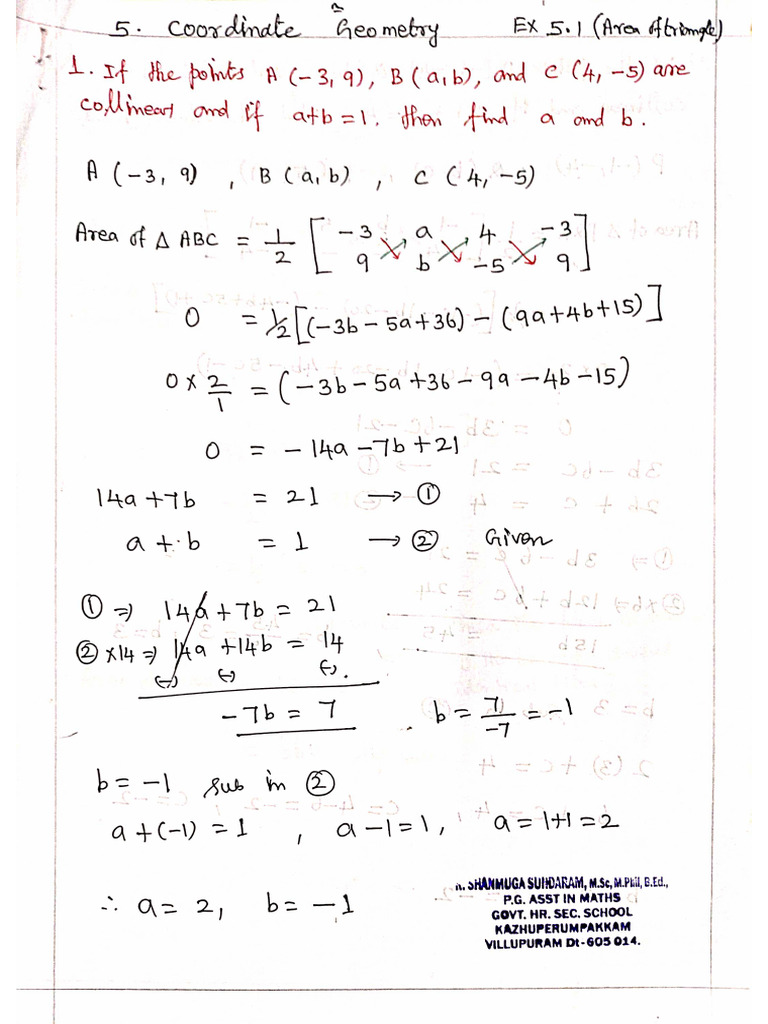 5. Coordinate Geometry Ex 5.1 (Area of triangle)
1. If the points A (-3, 9), B (a, b), and C (4, -5) are
collinear and if a+b = 1. then find a and b.
A (-3, 9) , B (a, b) , C (4, -5)
Area of Δ ABC = 1/2 [ -3 a 4 -3
9 b -5 9 ]
0 = 1/2 [(-3b - 5a + 36) - (9a + 4b + 15)]
0 × 2/1 = (-3b - 5a + 36 - 9a - 4b - 15)
0 = -14a - 7b + 21
14a + 7b = 21 → ①
a + b = 1 → ② Given
① ⇒ 14a + 7b = 21
② ×14 ⇒ 14a + 14b = 14
(-) (-) (-).
-7b = 7 b = 7/-7 = -1
b = -1 sub in ②
a + (-1) = 1 , a - 1 = 1, a = 1+1 = 2
∴ a = 2, b = -1
SHANMUGA SUNDARAM, M.Sc, M.Phil, B.Ed.,
P.G. ASST IN MATHS
GOVT. HR. SEC. SCHOOL
KAZHUPERUMPAKKAM
VILLUPURAM Dt-605 014.